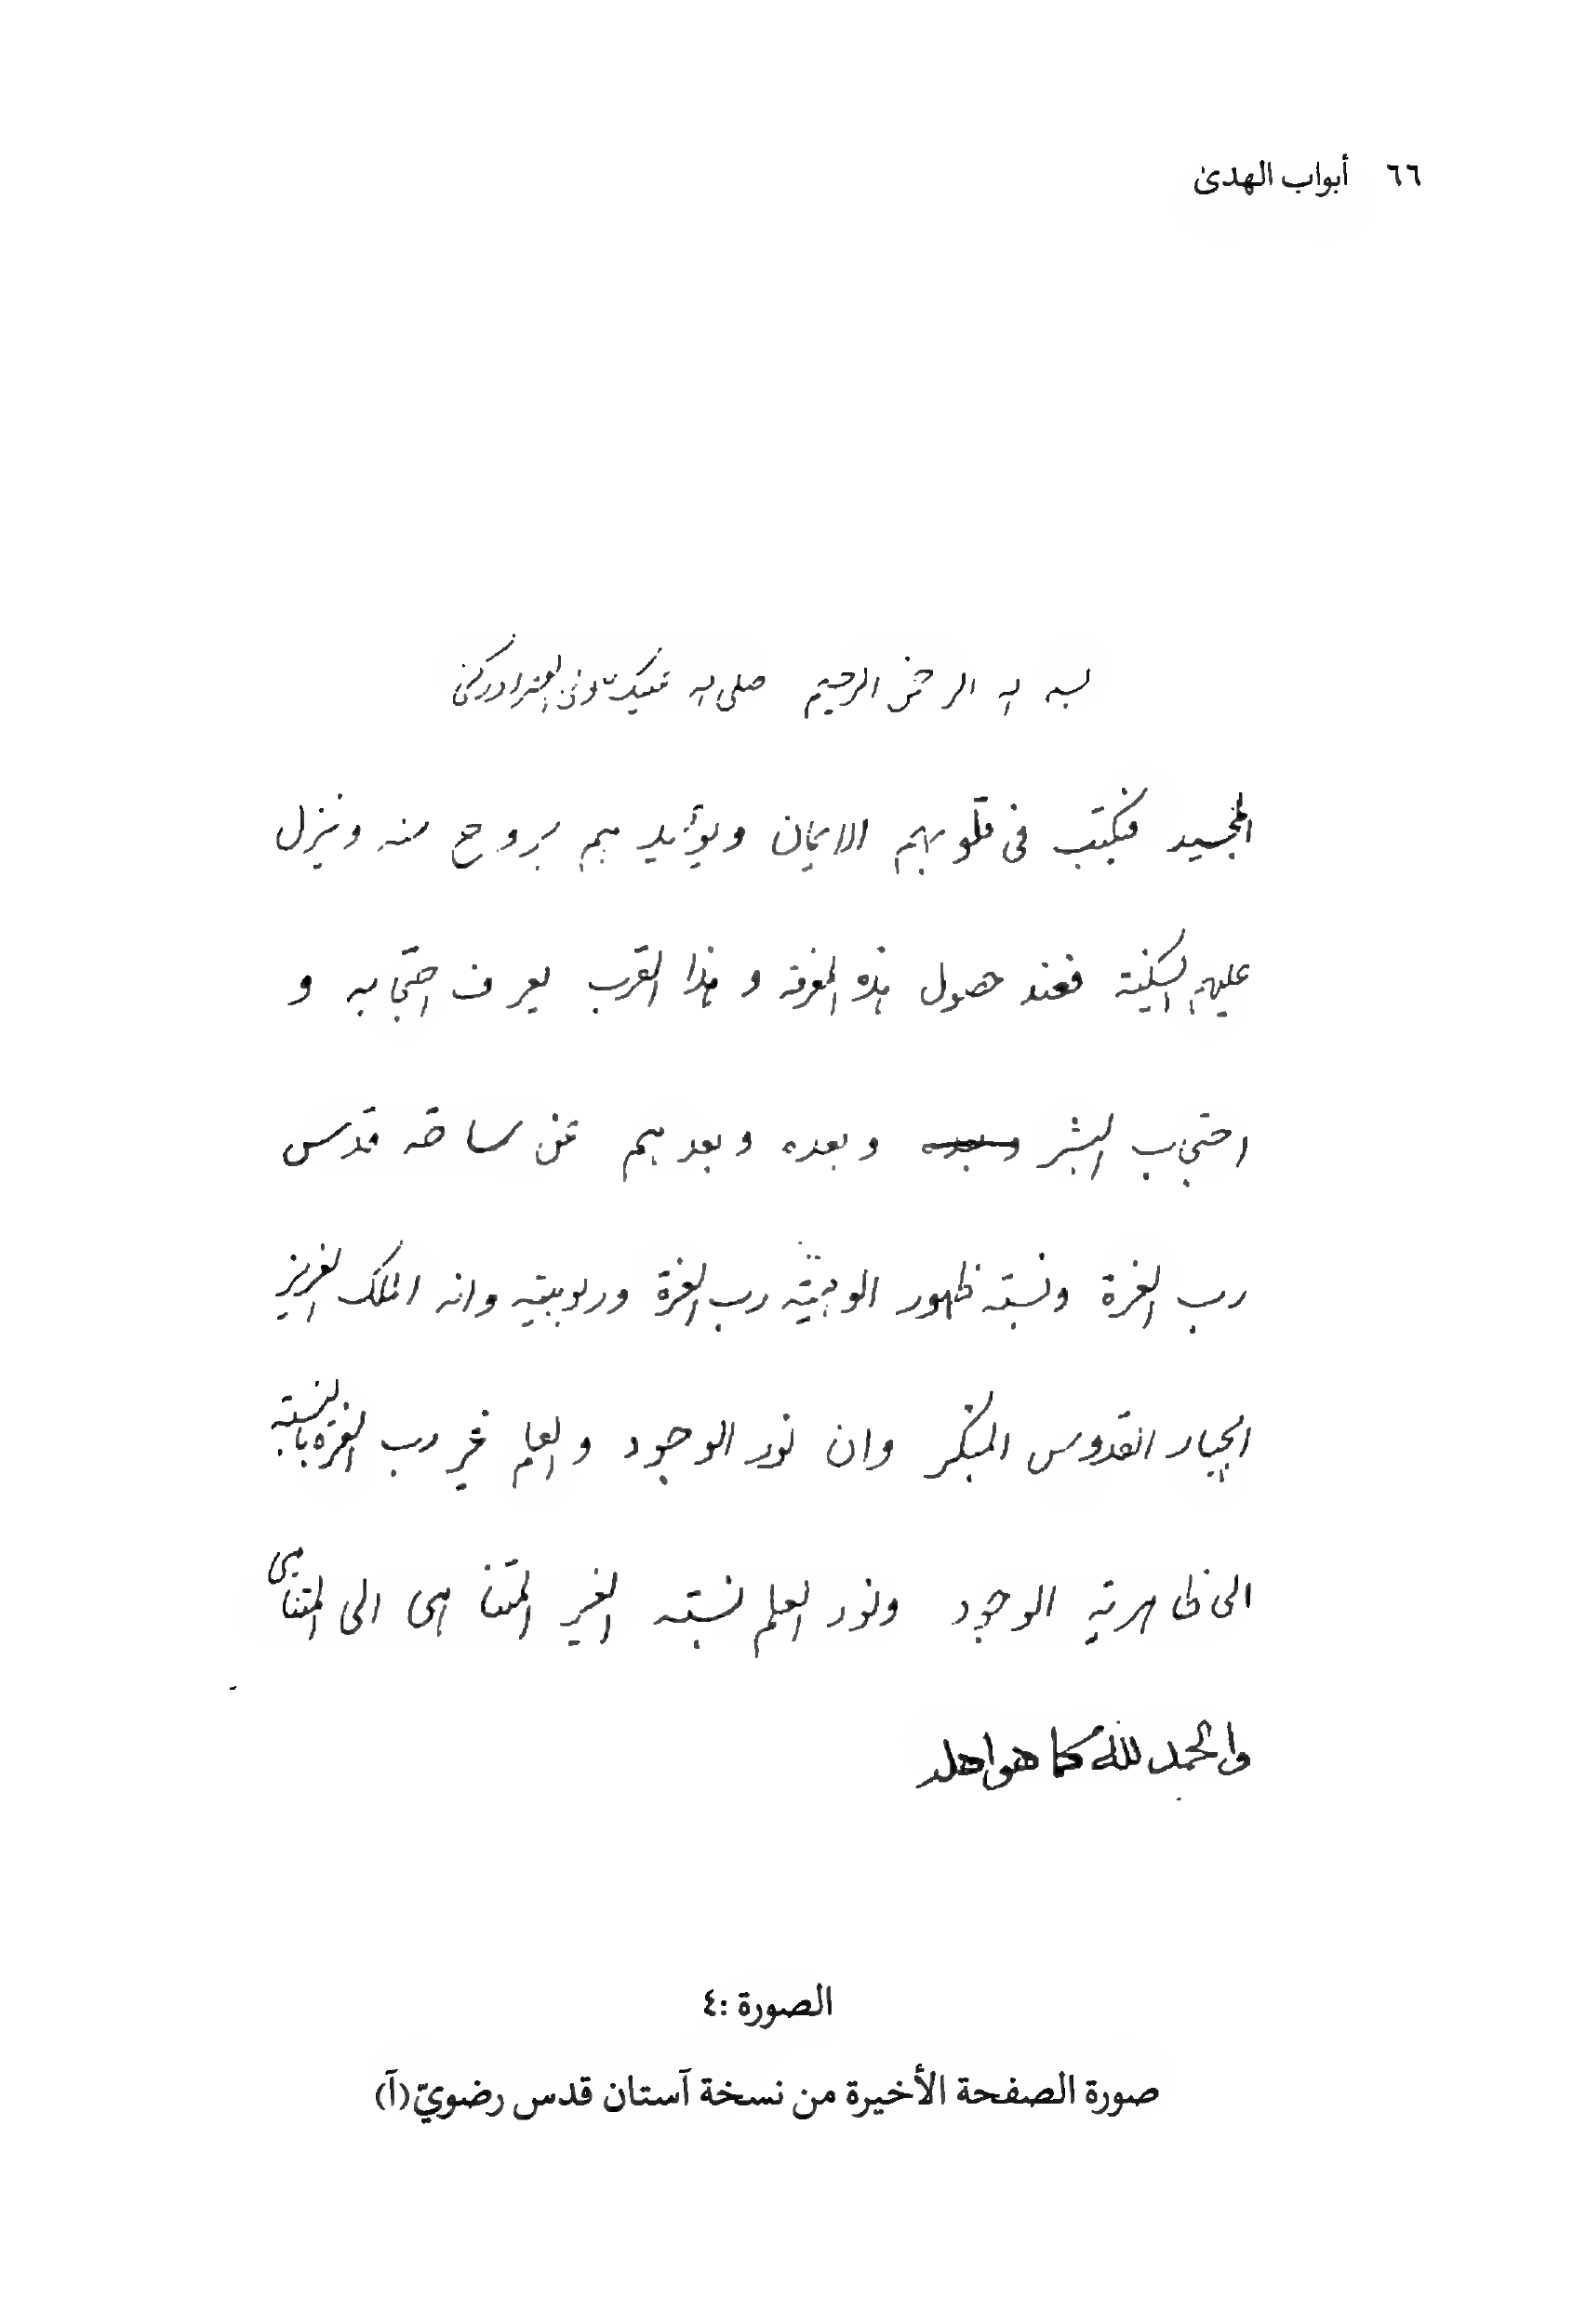 ٦٦ أبواب الهدىٰ
بسم الله الرحمن الرحيم صلى الله عليك ادركنى
المجيد فيكتب فى قلوبهم الايمان ويؤيدهم بروح منه وينزل
عليهم السكينة فعند حصول هذه المعرفة و هذا القرب يعرف احتجابه و
احتجاب البشر وبعده وبعدهم عن ساحة قدس
رب العزة ونسبة ظهور الوهيّة رب العزة وربوبيته وانه الملك العزيز
الجبار القدوس المتكبر وان نور الوجود والعلم رب العزة بالنسبة
الى ظاهرية الوجود ونور العلم نسبة الغير المتناهى الى المتناهى
والحمد لله كما هو اهله
الصورة :٤
صورة الصفحة الأخيرة من نسخة آستان قدس رضويّ (آ)